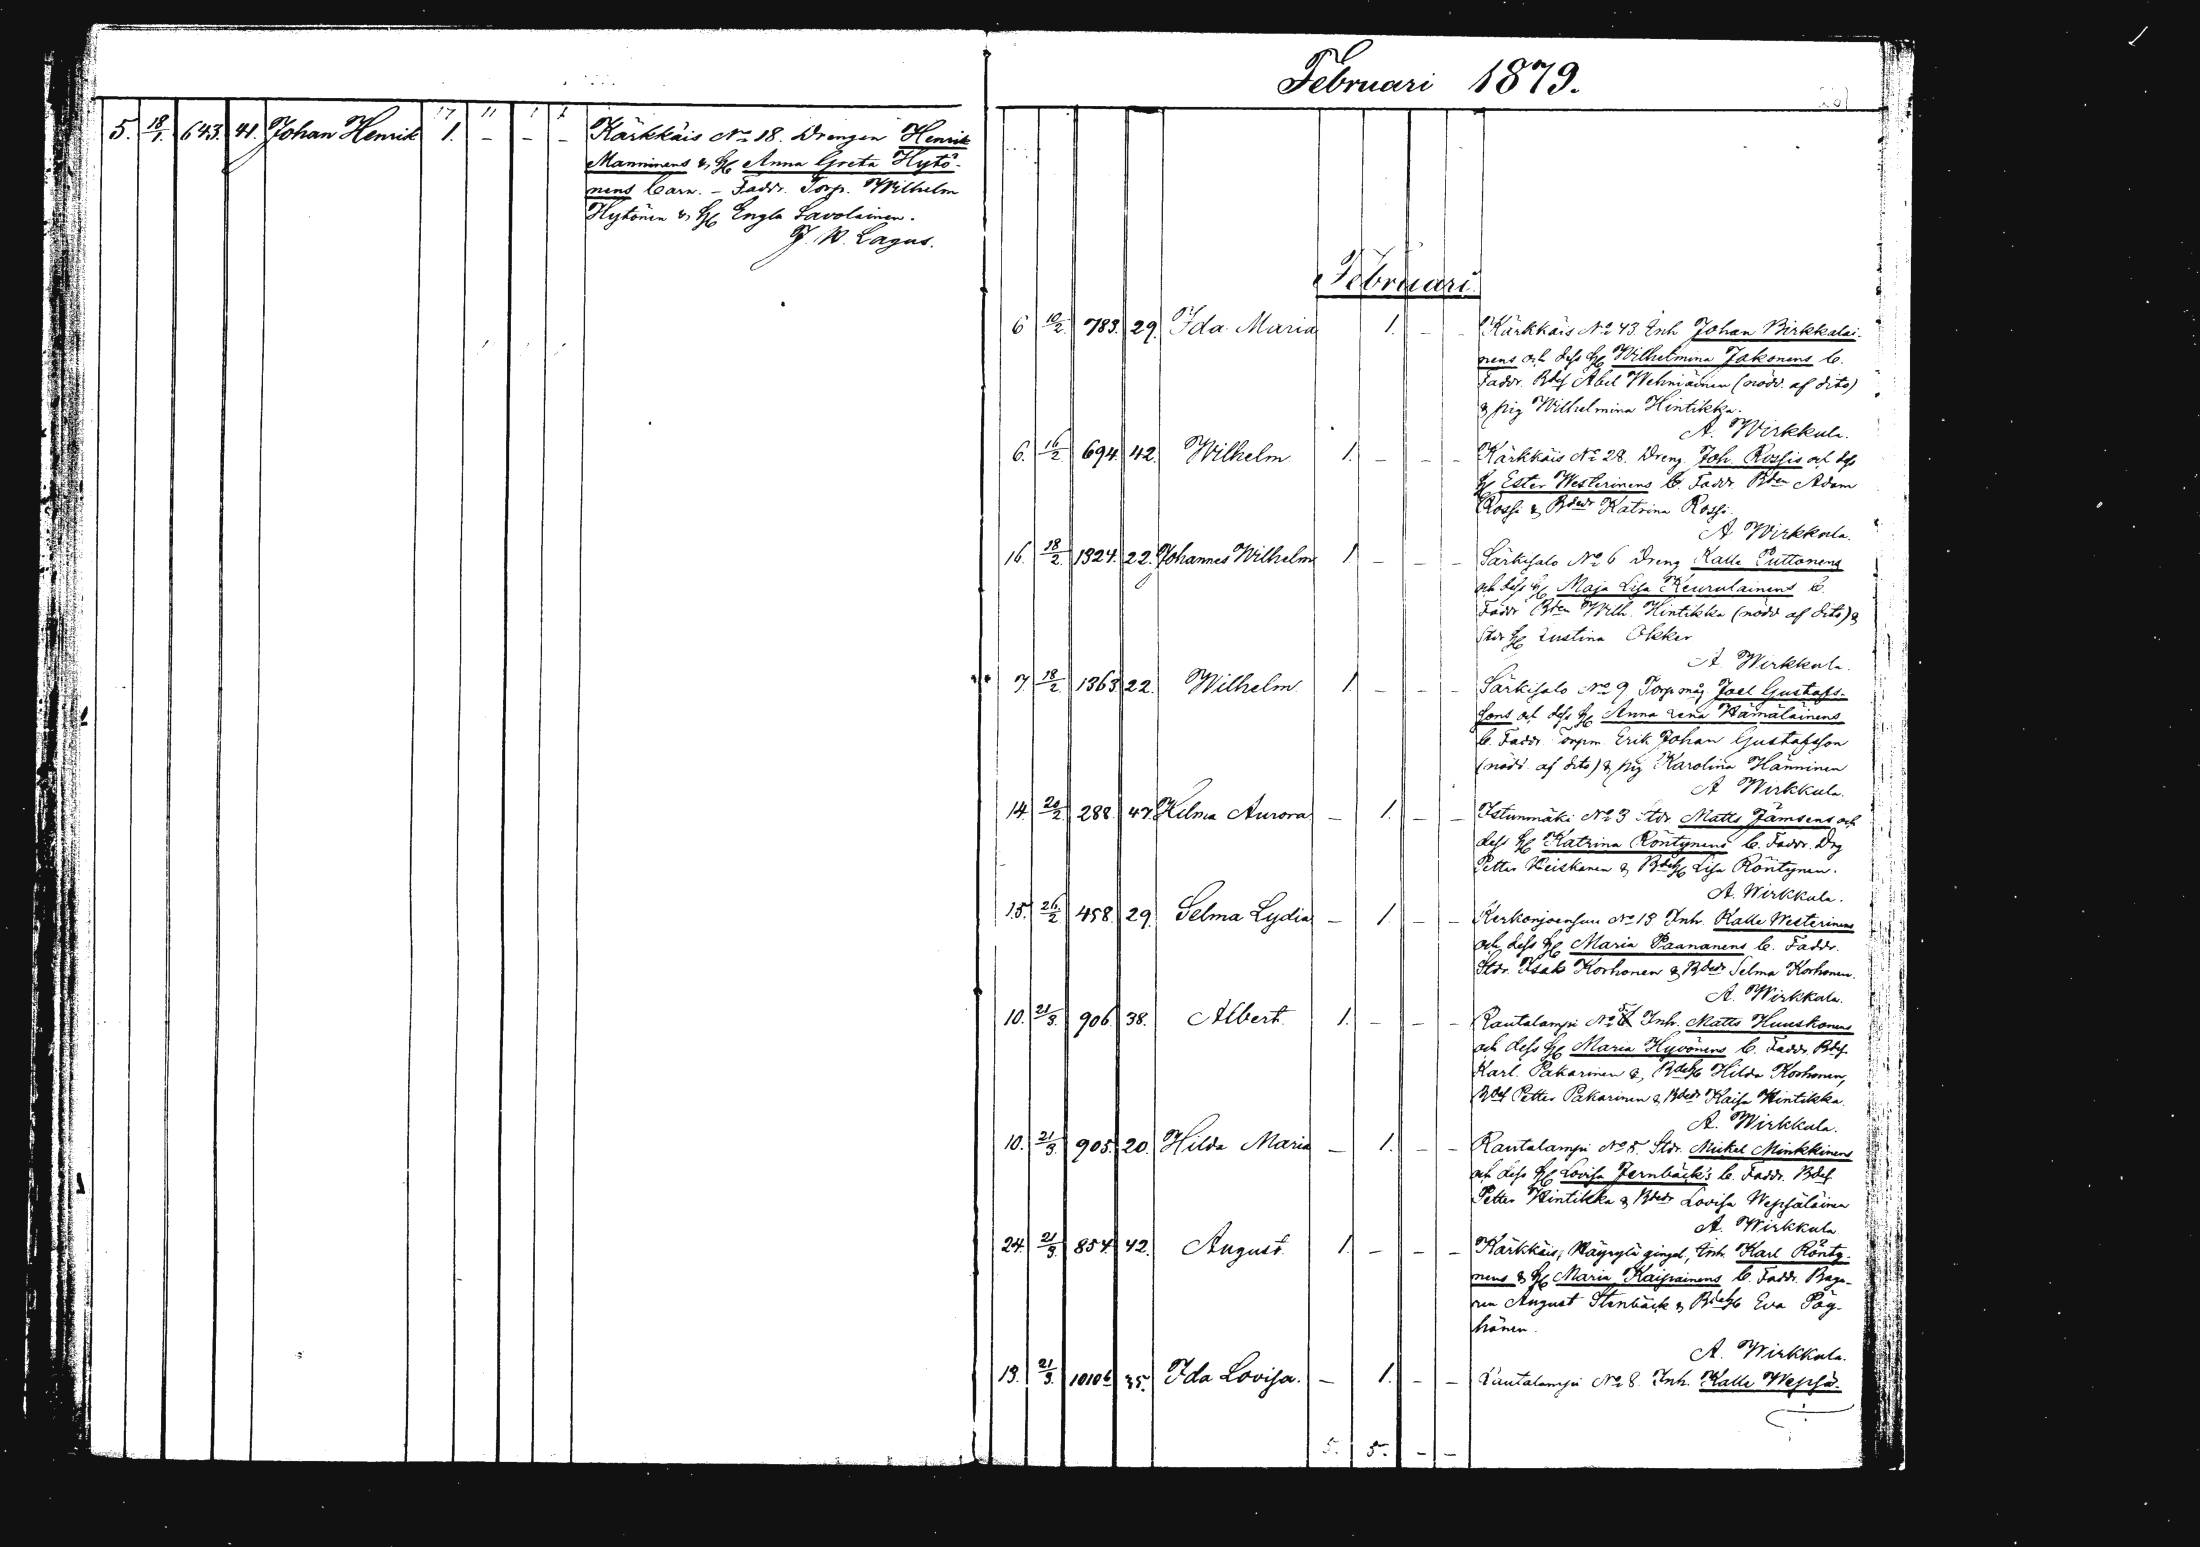 Februari 1879.
17 11 1 1
5. 18/1. 643. 41. Johan Henrik 1. - - - Kärkkäis No 18. Drengen Henrik
Manninens & H Anna Greta Hytö-
nens barn. - Faddr. Torp. Wilhelm
Hytönen & H Engla Savolainen.
J. W. Lagus.
Februari.
6 10/2 783. 29. Ida Maria 1. - - Kärkkäis No 43. Inh Johan Birkkalai-
nens och dess H Wilhelmina Jakonens b.
Faddr. Bdes Abel Wehniäinen (nödd. af dito)
& pig Wilhelmina Hintikka.
A. Wirkkula.
6. 16/2 694. 42. Wilhelm 1. - - - Kärkkäis No 28. Dreng Joh. Rossis och dess
H Ester Westerinens b. Faddr. Bden Adam
Rossi & Bdedr Katrina Rossi.
A Wirkkula.
16. 18/2. 1324. 22. Johannes Wilhelm 1. - - - Särkisalo No 6 Dreng Kalle Puttonens
och dess H Maja Lisa Keurulainens b.
Faddr Bden Wilh. Hintikka (nödd af dito) &
Stdr H Justina Okker
A. Wirkkula.
7. 18/2. 1363 22. Wilhelm 1. - - - Särkisalo No 9 Torpmåg Joel Gustafs-
sons och dess H Anna Lena Hämäläinens
b. Faddr Torpm. Erik Johan Gustafsson
(nödd. af dito) & pig Karolina Hänninen
A Wirkkula.
14. 20/2. 288. 47. Hilma Aurora - 1. - - Istunmäki No 3 Stdr Matts Jämsens och
dess H Katrina Röntynens b. Faddr. Drg
Petter Heiskanen & Bdes H Lisa Röntynen.
A. Wirkkula.
15. 26/2 458. 29. Selma Lydia - 1 - - Kerkonjoensuu No 13 Inh. Kalle Westerinens
och dess H Maria Paananens b. Faddr.
Stdr. Isak Korhonen & Bdedr Selma Korhonen.
A. Wirkkula.
10. 21/3. 906. 38. Albert. 1. - - - Rautalampi No 5 Inh. Matts Huuskonens
och dess H Maria Hyvönens b. Faddr. Bdes
Karl. Pakarinen &, Bdes H Hilda Korhonen,
Bdes Petter Pakarinen & Bdedr Kaisa Hintikka.
A. Wirkkula.
10. 21/3. 905. 20. Hilda Maria - 1. - - Rautalampi No 5. Stdr. Mickel Minkkinens
och dess H Lovisa Jernbäck's b. Faddr. Bdes
Petter Hintikka & Bdedr Lovisa Wepsäläinen
A. Wirkkula
24. 21/3. 854. 42. August. 1. - - - Kärkkäis, Käyrylä gingel, Inh. Karl Rönty-
nens & H Maria Kaipainens b. Faddr. Baga-
ren August Stenbäck & Bdes H Eva Pöy-
hönen.
A. Wirkkula.
13. 21/3. 1010b 35. Ida Lovisa. - 1. - - Rautalampi No 8. Inh. Kalle Wepsä-
5. 5. - -